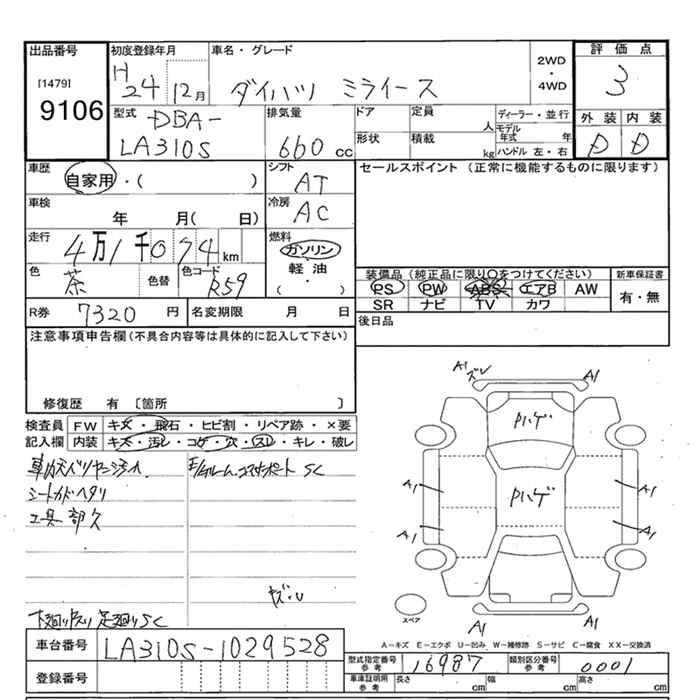 出品番号 初度登録年月 車名・グレード 評価点
[1479] 9106 H24 12月 ダイハツ ミライース 2WD・4WD 3
型式 DBA- LA310S 排気量 660cc ドア 定員 人 ディーラー・並行 外装 内装
形状 積載 kg モデル年式 年 ハンドル 左・右 D D
車歴 自家用・( ) シフト AT セールスポイント (正常に機能するものに限ります)
車検 年 月( 日) 冷房 AC
走行 4万1千074km 燃料 ガソリン 軽油 ( ・ )
色 茶 色替 色コード R59 装備品 (純正品に限り○をつけてください) 新車保証書
PS PW ABS エアB AW 有・無
SR ナビ TV カワ
R券 7320円 名変期限 月 日 後日品
注意事項申告欄(不具合内容等は具体的に記入して下さい)
修復歴 有 [箇所 ]
検査員 FW キズ・飛石・ヒビ割・リペア跡・×要
記入欄 内装 キズ・汚レ・コゲ・穴・スレ・キレ・破レ
シートカドヘタリ
工具一部欠
A1 ズレ A1
Pハゲ
Pハゲ
A1 A1
A1 A1
スペア
A1 A1
A-キズ E-エクボ U-凹み W-補修跡 S-サビ C-腐食 XX-交換済
車台番号 LA310S-1029528
型式指定番号 参考 16987 類別区分番号 参考 0001
登録番号 車庫証明用 参考 長さ cm 幅 cm 高さ cm